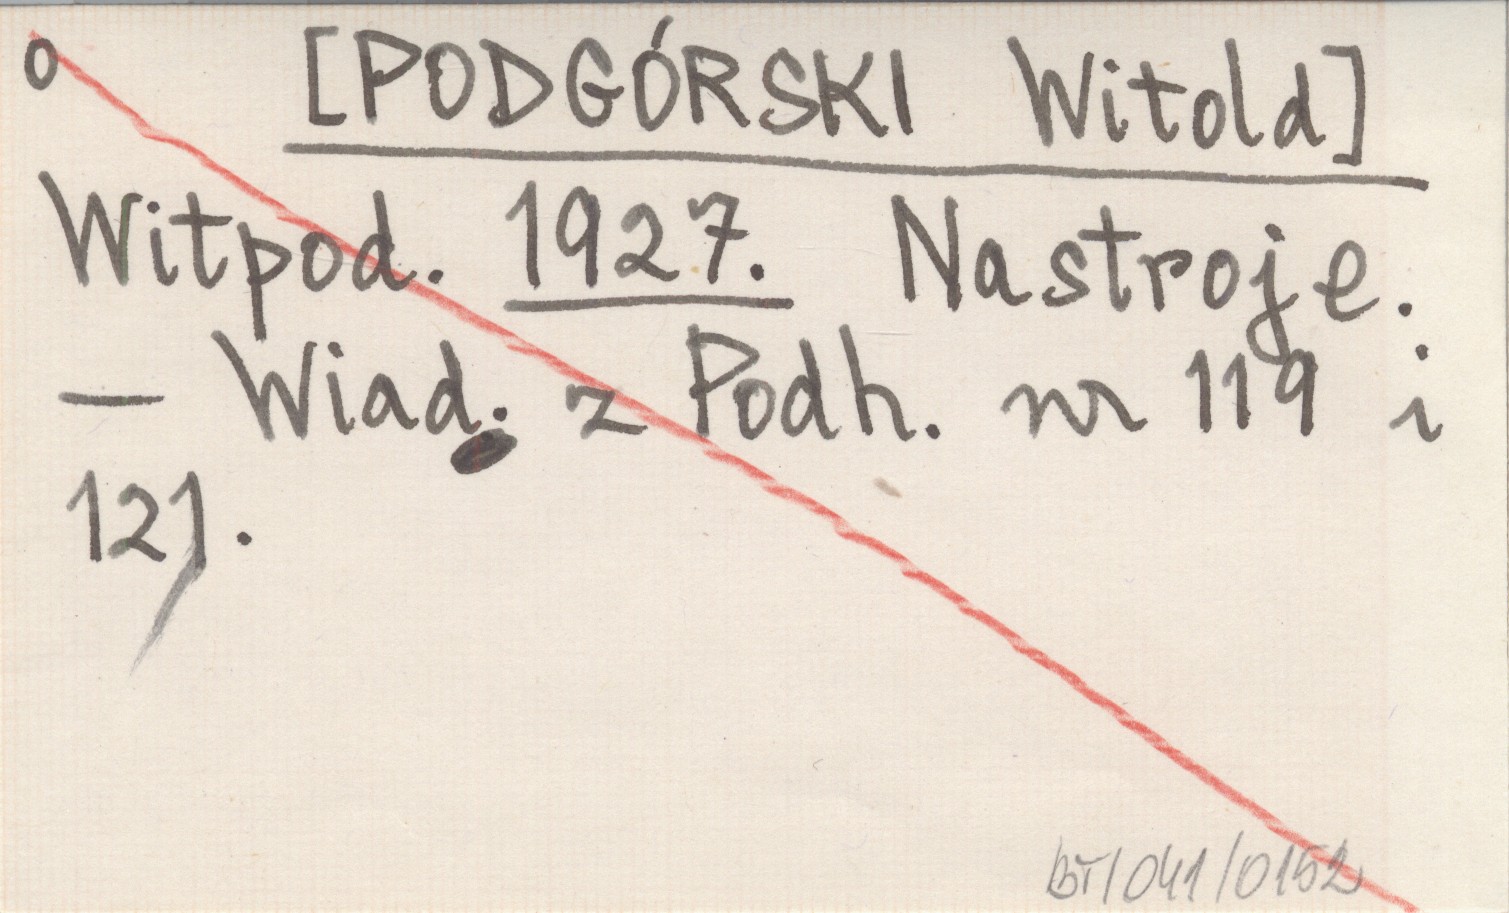 o [PODGÓRSKI Witold]
Witpod. 1927. Nastroje.
— Wiad. z Podh. nr 119 i
121.
BT/041/0152